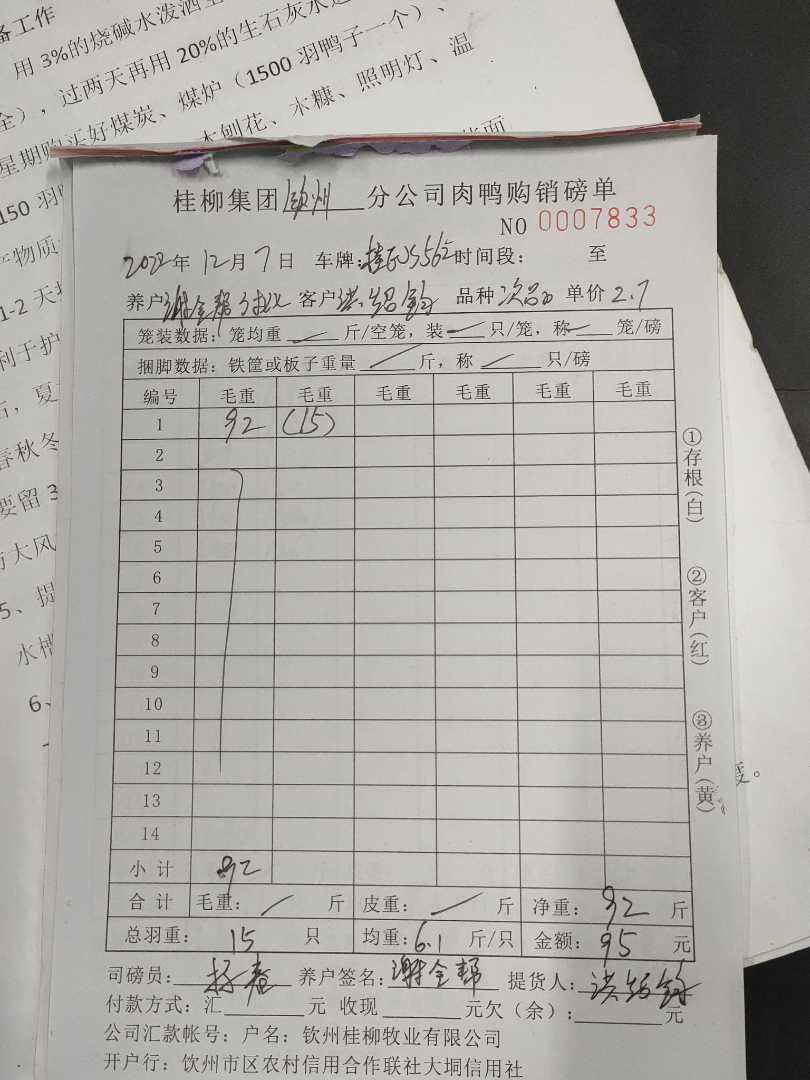 备工作
用3%的烧碱水泼洒
全），过两天再用20%的生石灰水
星期购买好煤炭、煤炉（1500羽鸭子一个）、
木刨花、木糠、照明灯、温
150羽
物质
1-2天
利于护
石，夏
春秋冬
要留3
大风
5、提
水槽
6、
桂柳集团钦州分公司肉鸭购销磅单
NO 0007833
2022年12月7日 车牌： 时间段： 至
养户谢金帮 客户洪 品种次品 单价2.7
笼装数据：笼均重 斤/空笼，装 只/笼，称 笼/磅
捆脚数据：铁筐或板子重量 斤，称 只/磅
编号 毛重 毛重 毛重 毛重 毛重 毛重
1 92 (15)
2
3
4
5
6
7
8
9
10
11
12
13
14
小计 92
合计 毛重： 斤 皮重： 斤 净重：92斤
总羽重：15只 均重：6.1斤/只 金额：95元
司磅员： 养户签名：谢金帮 提货人：洪
付款方式：汇 元 收现 元欠（余）： 元
公司汇款帐号：户名：钦州桂柳牧业有限公司
开户行：钦州市区农村信用合作联社大垌信用社
①存根(白)
②客户(红)
③养户(黄)